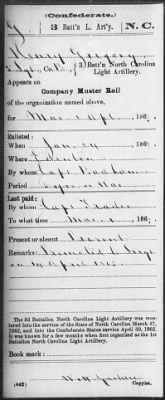 (Confederate.)
G 3 Batt'n L. Art'y. N. C.
Henry Gregory
Sgt, Co. , 3 Batt'n North Carolina
Light Artillery.
Appears on
Company Muster Roll
of the organization named above,
for Mar & Apl, 186
Enlisted:
When Jan 24, 186
Where Edenton
By whom Capt Badham
Period
Last paid:
By whom Capt
To what time Mar 1, 186
Present or absent Present
Remarks: Promoted Sergt
April
The 3d Battalion North Carolina Light Artillery was mustered
into the service of the State of North Carolina March 27,
1862, and into the Confederate States service April 30, 1862.
It was known for a few months when first organized as the 1st
Battalion North Carolina Light Artillery.
Book mark:
(642)
Copyist.